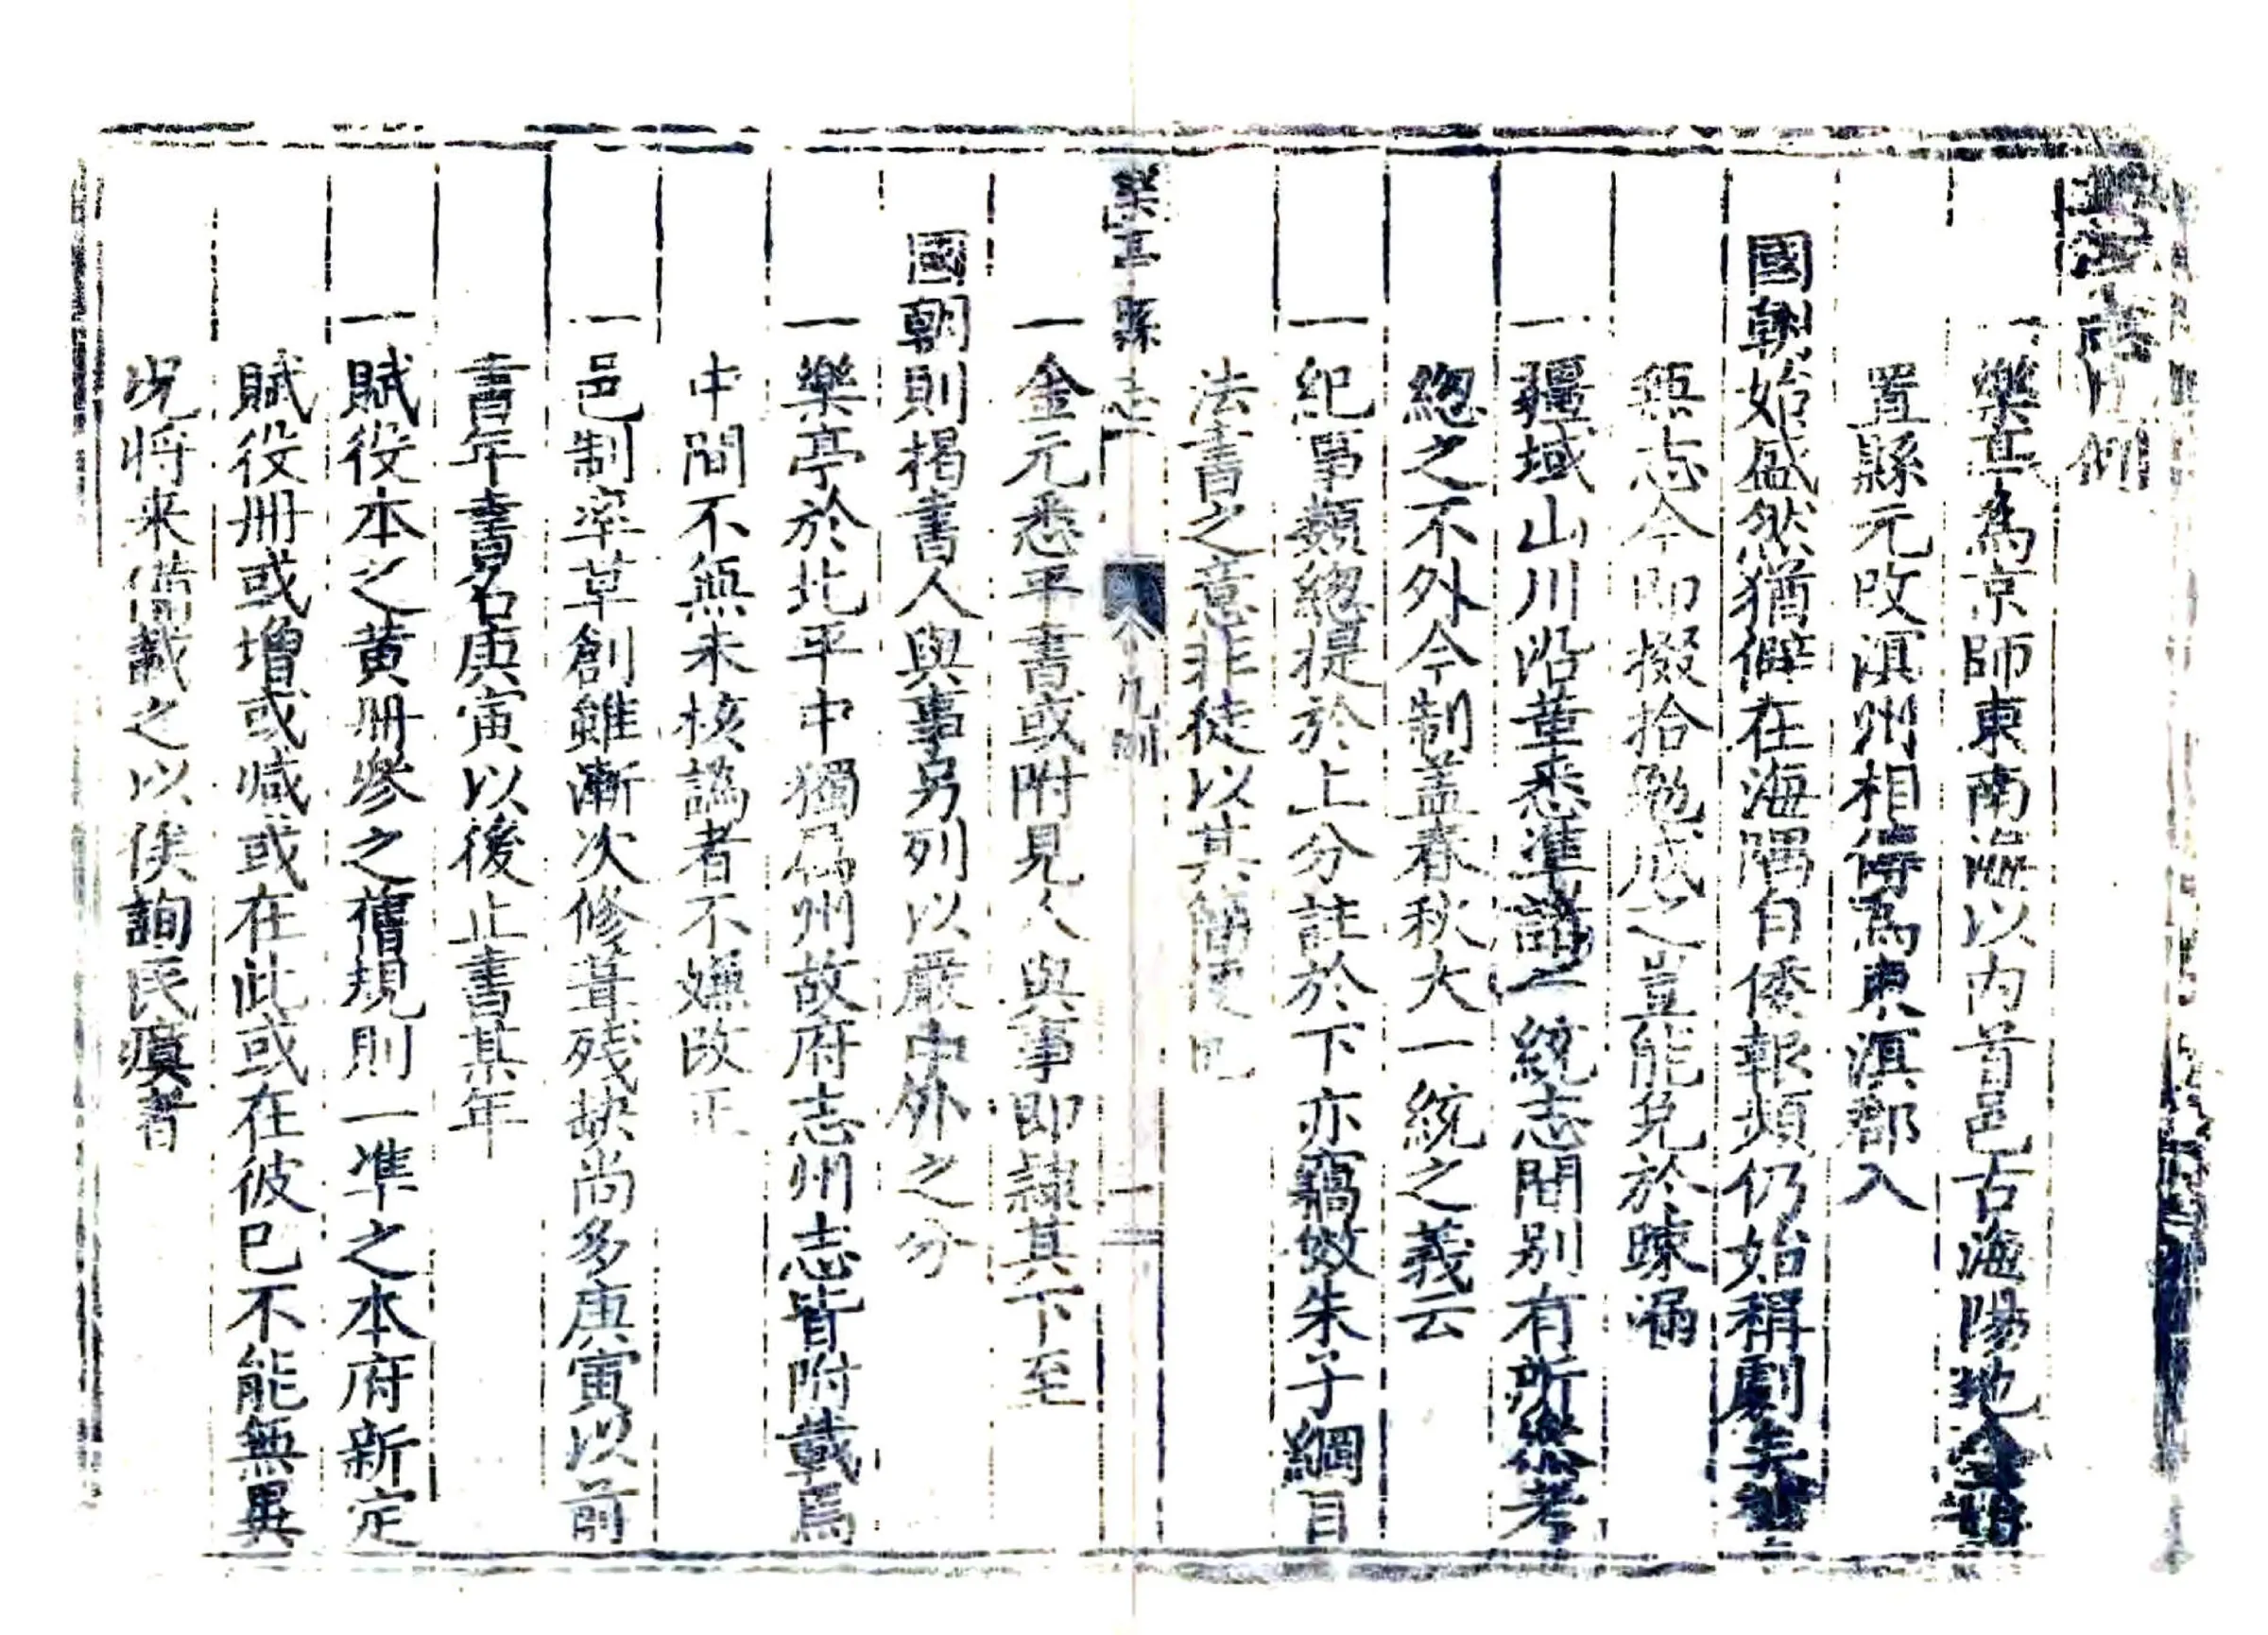 樂亭志凡例
一樂亭為京師東南海以内首邑古海陽地金始
置縣元改滇州相傳為東滇郡入
國朝始盛然猶僻在海隅自倭報頻仍始稱劇矣舊
無志今即掇拾勉成之豈能免於踈漏
一疆域山川沿革悉準諸一統志間別有所叅考
緫之不外今制盖春秋大一統之義云
一紀事類緫提於上分註於下亦竊效朱子綱目
法書之意非徒以其簡便也
樂亭縣志 凡例 一
一金元悉平書或附見人與事即隷其下至
國朝則揭書人與事另列以嚴中外之分
一樂亭於北平中獨為州故府志州志皆附載焉
中間不無未核譌者不嫌改正
一邑制率草創雖漸次修葺残缺尚多庚寅以前
書年書名庚寅以後止書某年
一賦役本之黄册參之舊規則一準之本府新定
賦役册或增或减或在此或在彼已不能無異
况将来備載之以俟詢民瘼者